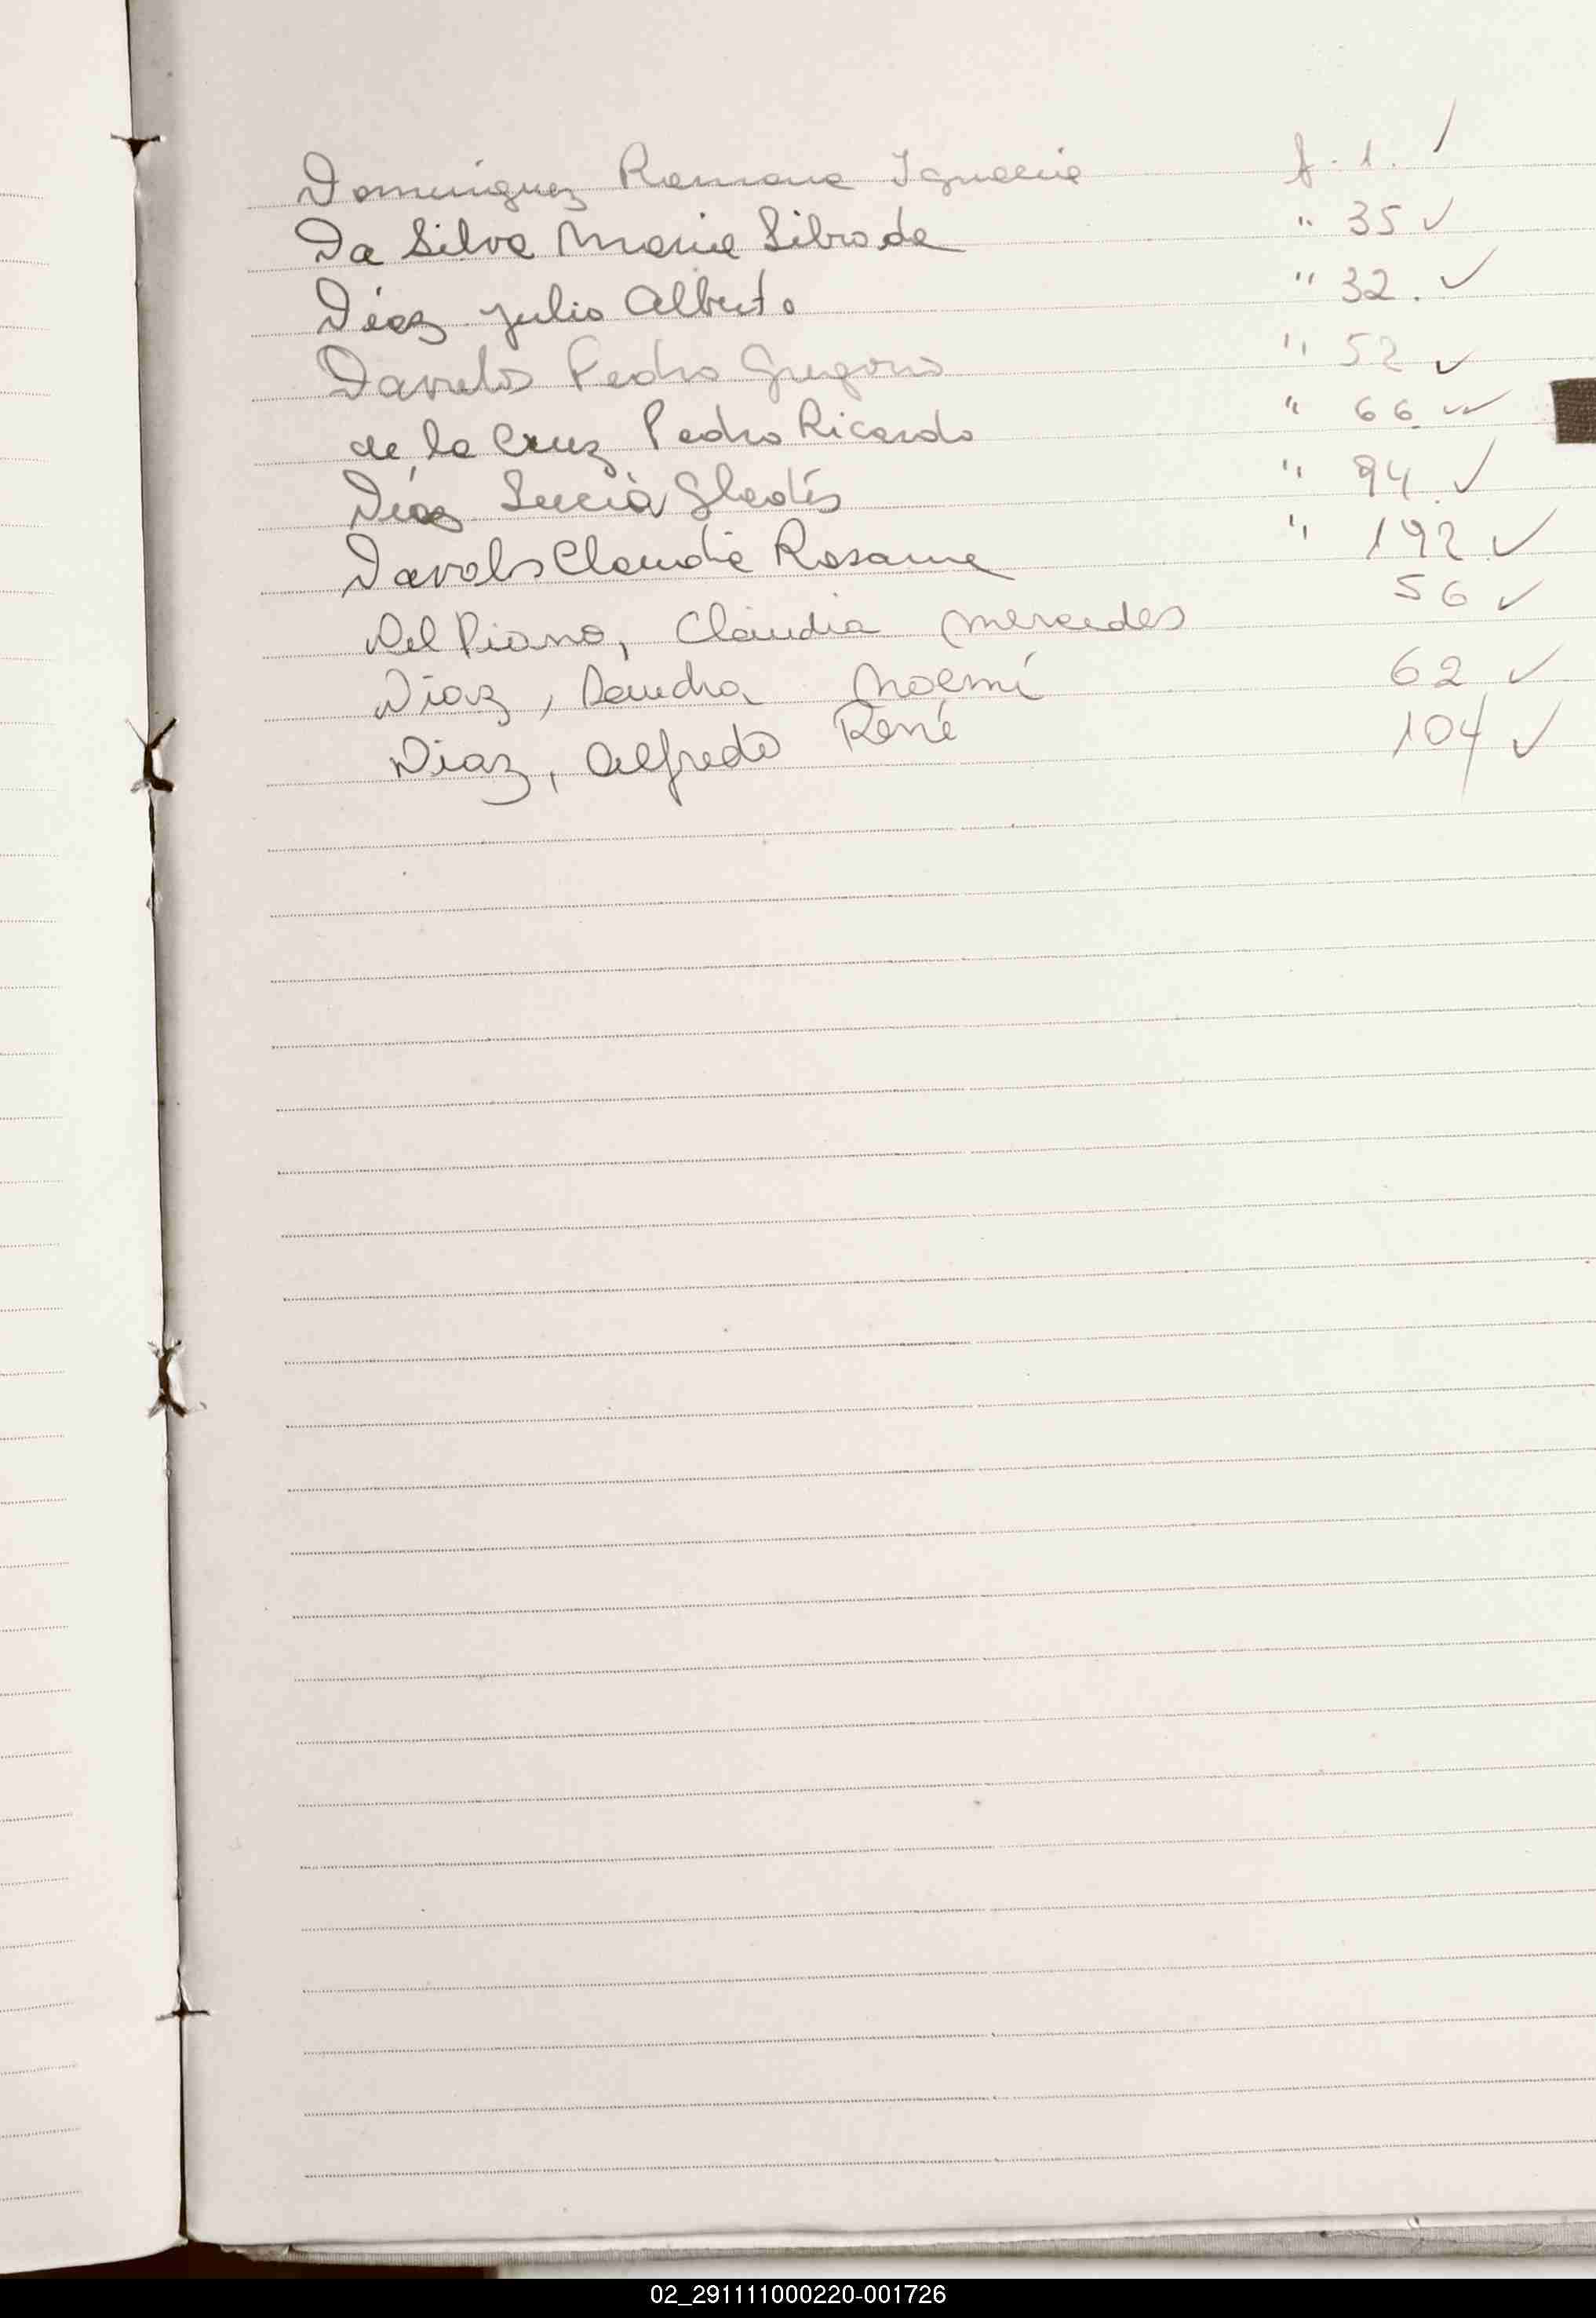 Dominguez Ramona Ignacia f. 1. /
Da Silva Maria Librada " 35 ✓
Díaz Julio Alberto " 32. ✓
Davalos Pedro Gregorio " 52 ✓
de la Cruz Pedro Ricardo " 66 ✓✓
Díaz Lucia Gladis " 94. ✓
Davalos Claudia Rosana " 192 ✓
Del Piano, Claudia Mercedes 56 ✓
Díaz, Sandra Noemí 62 ✓
Diaz, Alfredo René 104 ✓
02_291111000220-001726